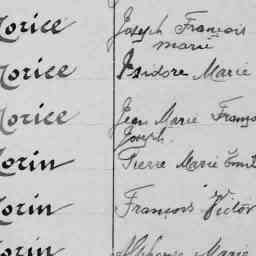 Morice Joseph François
marie
Morice Isidore Marie
Morice Jean Marie Franço
Joseph.
Morin Pierre Marie Emil
Morin François Victor
Morin Alphonse Marie